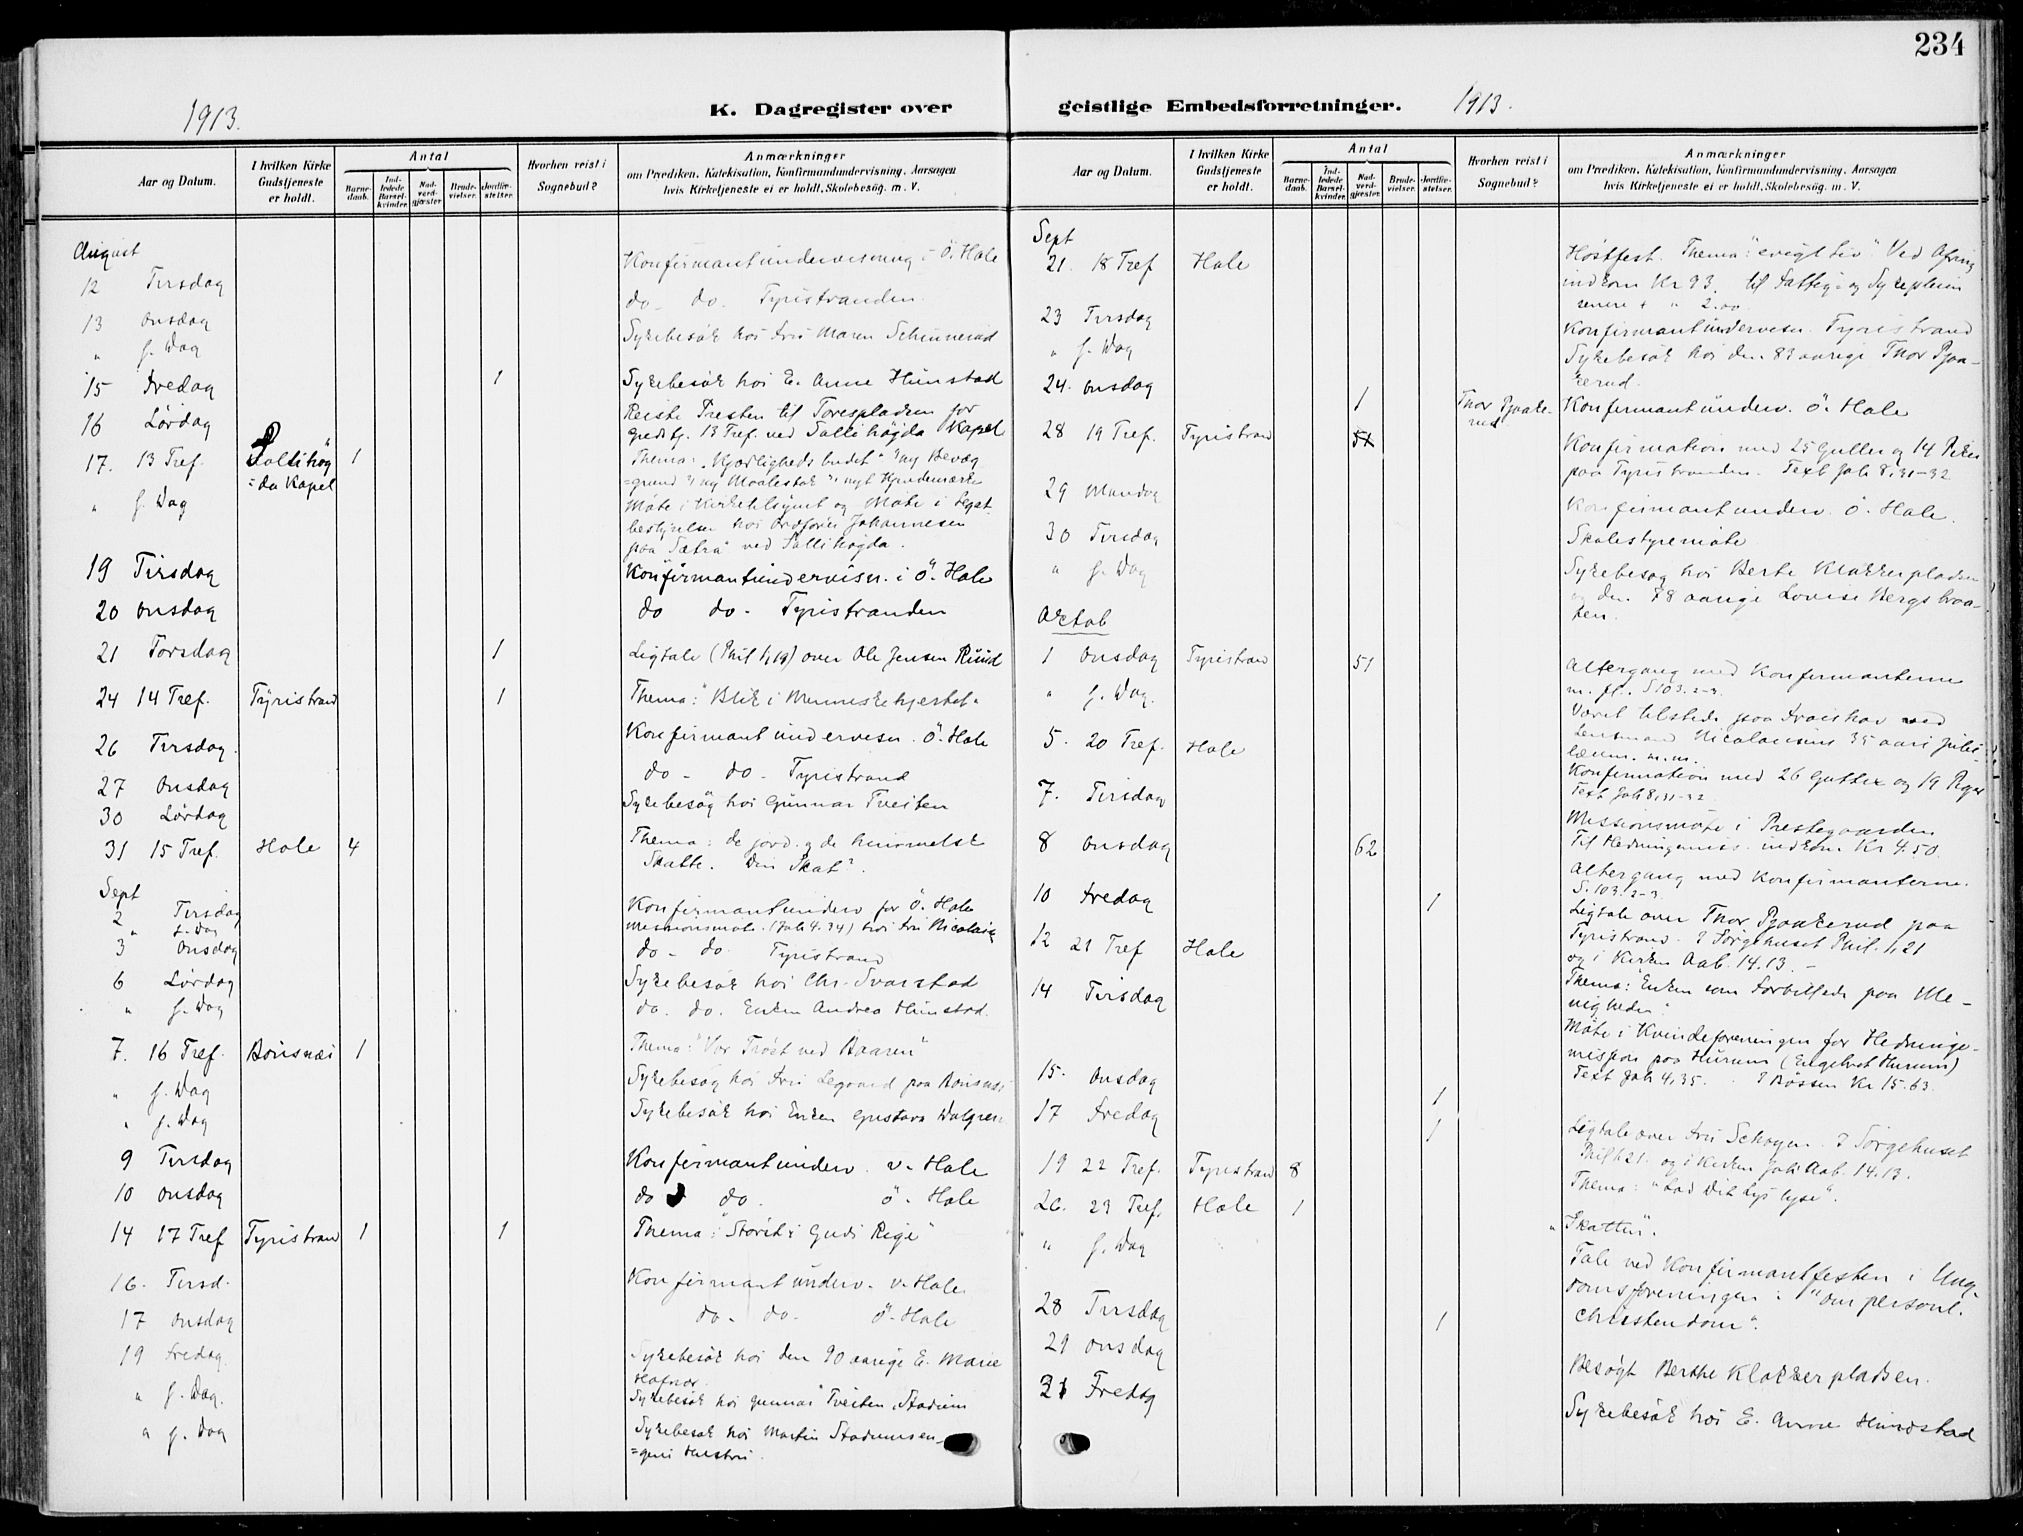 234
1913.
K. Dagregister over
geistlige Embedsforretninger.
1913.
Aar og Datum.
I hvilken Kirke
Gudstjeneste
er holdt.
Antal
Barne-
daab.
Ind-
ledede
Barsel-
kvinder.
Nad-
verd-
gjæster.
Brude-
vielser.
Jordfæ-
stelser.
Hvorhen reist i
Sognebud?
Anmærkninger
om Prædiken, Katekisation, Konfirmandundervisning, Aarsagen
hvis Kirketjeneste ei er holdt, Skolebesög, m. V.
August
12 Tirsdag
Konfirmantundervisning i Ö. Hole
13 Onsdag
do- do. Tyristranden.
" s. Dag
Sykebesök hos Fru Maren
15 Fredag 1
Sykebesök hos E. Anne Hunstad
16 Lördag
Reiste Presten til for
gudstj. 13 Tref. ved Sollihögda Kapel
17. 13 Tref. Sollihög 1
=da Kapel
Thema: "Kjærlighedsbudet" "ny Bevæg
=grund" "ny Maalestok" "nyt Kjendemærke
" s. Dag
Möte i Kirketilsynet og Möte i Legat
bestyrelse hos Ordförer Johannesen
paa Sætra ved Sollihögda.
19 Tirsdag
Konfirmantundervisn. i Ö. Hole
20 Onsdag
do do- Tyristranden
21 Torsdag 1
Ligtale (Phil 1,19) over Ole Jensen Ruud
24 14 Tref. Tyristrand 1
Thema: "Blik i Menneskehjertet"
26 Tirsdag.
Konfirmantundervisn. Ö. Hole
27 Onsdag
do- do- Tyristrand
30 Lördag
Sykebesög hos Gunnar Tveiten
31 15 Tref. Hole 4
Thema: de jord. og de himmelske
Skatte. Din Skat".
Sept
2 Tirsdag
Konfirmantunderv for Ö. Hole
" s. Dag
Missionsmöte (Joh 4.34) hos Fru
3 Onsdag
do- do. Tyristrand
6 Lördag
Sykebesök hos Chr. Svarstad
" s. Dag
do. do. Enken Andrea Hunstad.
7. 16 Tref. Bönsnes 1
Thema: "Vor Tröst ved Baaren"
" s. Dag
Sykebesög hos Fru Legaard paa Bönsnes
" s. Dag
Sykebesök hos Enken Gustava
9 Tirsdag
Konfirmantunderv. v. Hole
10 Onsdag
do do. ö. Hole
14 17 Tref Tyristrand 1 1
Thema: "Störst i Guds Rige"
16. Tirsd.
Konfirmantunderv. v. Hole
17 Onsdag
do- do- ö. Hole
19 Fredag.
Sykebesök hos den 90 aarige E. Marie
" s. Dag.
Sykebesök hos Gunnar Tveiten, Stadum
" s. Dag
Sykebesök hos Martin Stadumsen-
=gens Hustru.
Aar og Datum.
I hvilken Kirke
Gudstjeneste
er holdt.
Antal
Barne-
daab.
Ind-
ledede
Barsel-
kvinder.
Nad-
verd-
gjæster.
Brude-
vielser.
Jordfæ-
stelser.
Hvorhen reist i
Sognebud?
Anmærkninger
om Prædiken, Katekisation, Konfirmandundervisning, Aarsagen
hvis Kirketjeneste ei er holdt, Skolebesög, m. V.
Sept
21. 18 Tref Hole
Höstfest. Thema: "evigt Liv". Ved Ofring
indkom Kr 93. til Fattig- og Sykepleien
senere + " 2.00
23 Tirsdag
Konfirmantundervisn. Tyristrand
" s. Dag
Sykebesök hos den 83 aarige Thor Pjaa-
kerud.
24. Onsdag 1 Thor Pjaake-
rud
Konfirmantunderv. Ö. Hole
28 19 Tref. Tyristrand 51
Konfirmation med 25 Gutter og 14 Piker
paa Tyristranden. Text Joh 8,31-32
29 Mandag
Konfirmantunderv. Ö. Hole.
30 Tirsdag
Skolestyremöte
" s. Dag
Sykebesög hos Berte Klokkerpladsen
og den 78 aarige Lovise Bergsbraa-
ten.
Octob
1 Onsdag Tyristrand 51
Altergang med Konfirmanterne
m. fl. S 103.2-3.
" s. Dag.
Været tilstede paa ved
Lensmand 35 aars Jubi-
læum. m.m.
5. 20 Tref. Hole
Konfirmation med 26 Gutter og 19 Piger
Text Joh 8,31-32
7. Tirsdag
Missionsmöte i Prestegaarden
Til Hedningemiss. indkom Kr 4.50.
8 Onsdag 62
Altergang med Konfirmanterne.
S. 103.2-3.
10 Fredag 1
Ligtale over Thor Pjaakerud paa
Tyristrand. I Sörgehuset Phil. 1,21
og i Kirken Aab. 14.13.-
12 21 Tref Hole
Thema: "Enken som Forbillede paa Me-
nigheden".
14 Tirsdag
Möte i Kvindeforeningen for Hedninge-
mission paa Hurum (Engebret Hurum)
Text Joh 4,35. I Bössen Kr 15.63.
15. Onsdag 1
17 Fredag 1
Ligtale over Fru I Sörgehuset
Phil 1.21. og i Kirken Joh Aab. 14.13.
19 22 Tref. Tyristrand 8
Thema: "Lad Dit Lys lyse".
26. 23 Tref. Hole 1
" Skatten".
" s. Dag
Tale ved Konfirmantfesten i Ung-
domsforeningen: "om personl.
christendom".
28 Tirsdag 1
29 Onsdag
Besögt Berthe Klokkerpladsen.
31 Fredag
Sykebesök hos E. Anne Hundstad